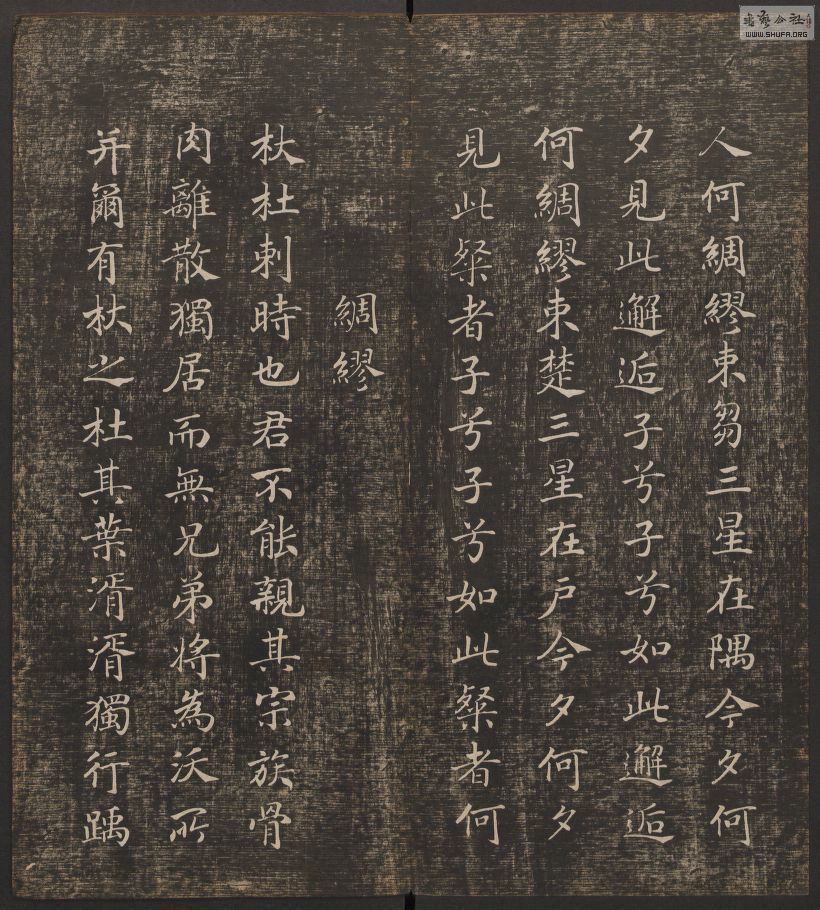 人何綢繆束芻三星在隅今夕何
夕見此邂逅子兮子兮如此邂逅
何綢繆束楚三星在戶今夕何夕
見此粲者子兮子兮如此粲者何
綢繆
杕杜刺時也君不能親其宗族骨
肉離散獨居而無兄弟將為沃所
并爾有杕之杜其葉湑湑獨行踽
WWW.SHUFA.ORG